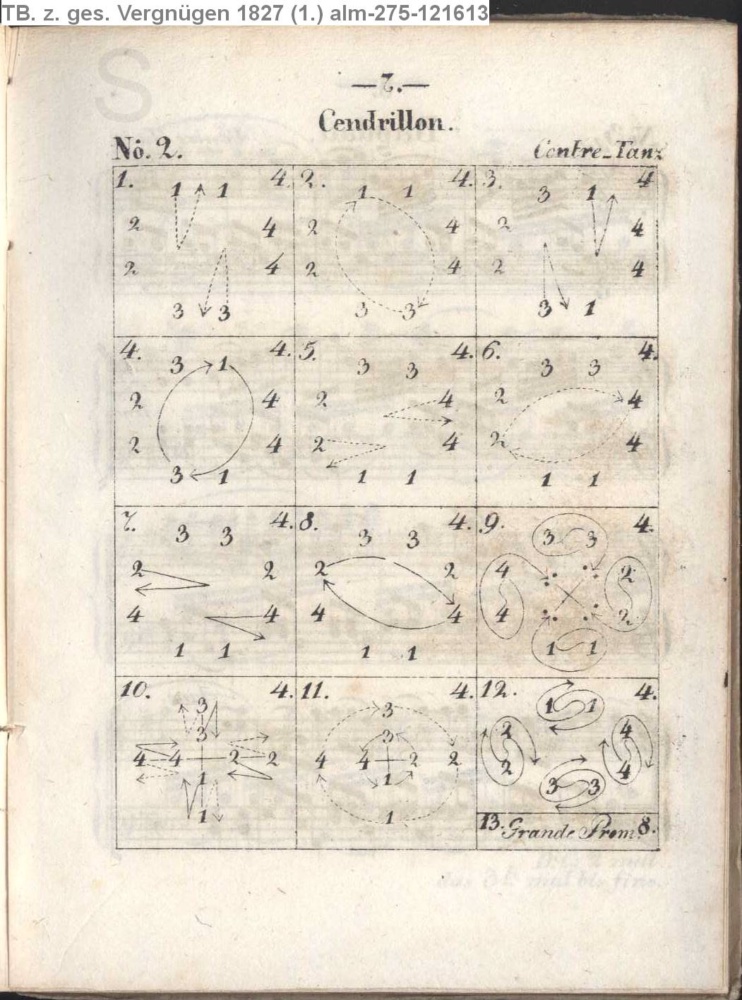 TB. z. ges. Vergnügen 1827 (1.) alm-275-121613
S
—7.—
Cendrillon.
No. 2.
Contre-Tanz
1. 1 1 4.
2 4
2 4
3 3
2. 1 1 4.
2 4
2 4
3 3
3. 3 1 4
2 4
2 4
3 1
4. 3 1 4.
2 4
2 4
3 1
5. 3 3 4.
2 4
2 4
1 1
6. 3 3 4.
2 4
2 4
1 1
7. 3 3 4.
2 2
4 4
1 1
8. 3 3 4.
2 2
4 4
1 1
9. 3 3 4.
4 2
4 2
1 1
10. 3 4.
3
4 4 2 2
1
1
11. 3 4.
3
4 4 2 2
1
1
12. 1 1 4.
2 4
2 4
3 3
13. Grande Prom. 8.